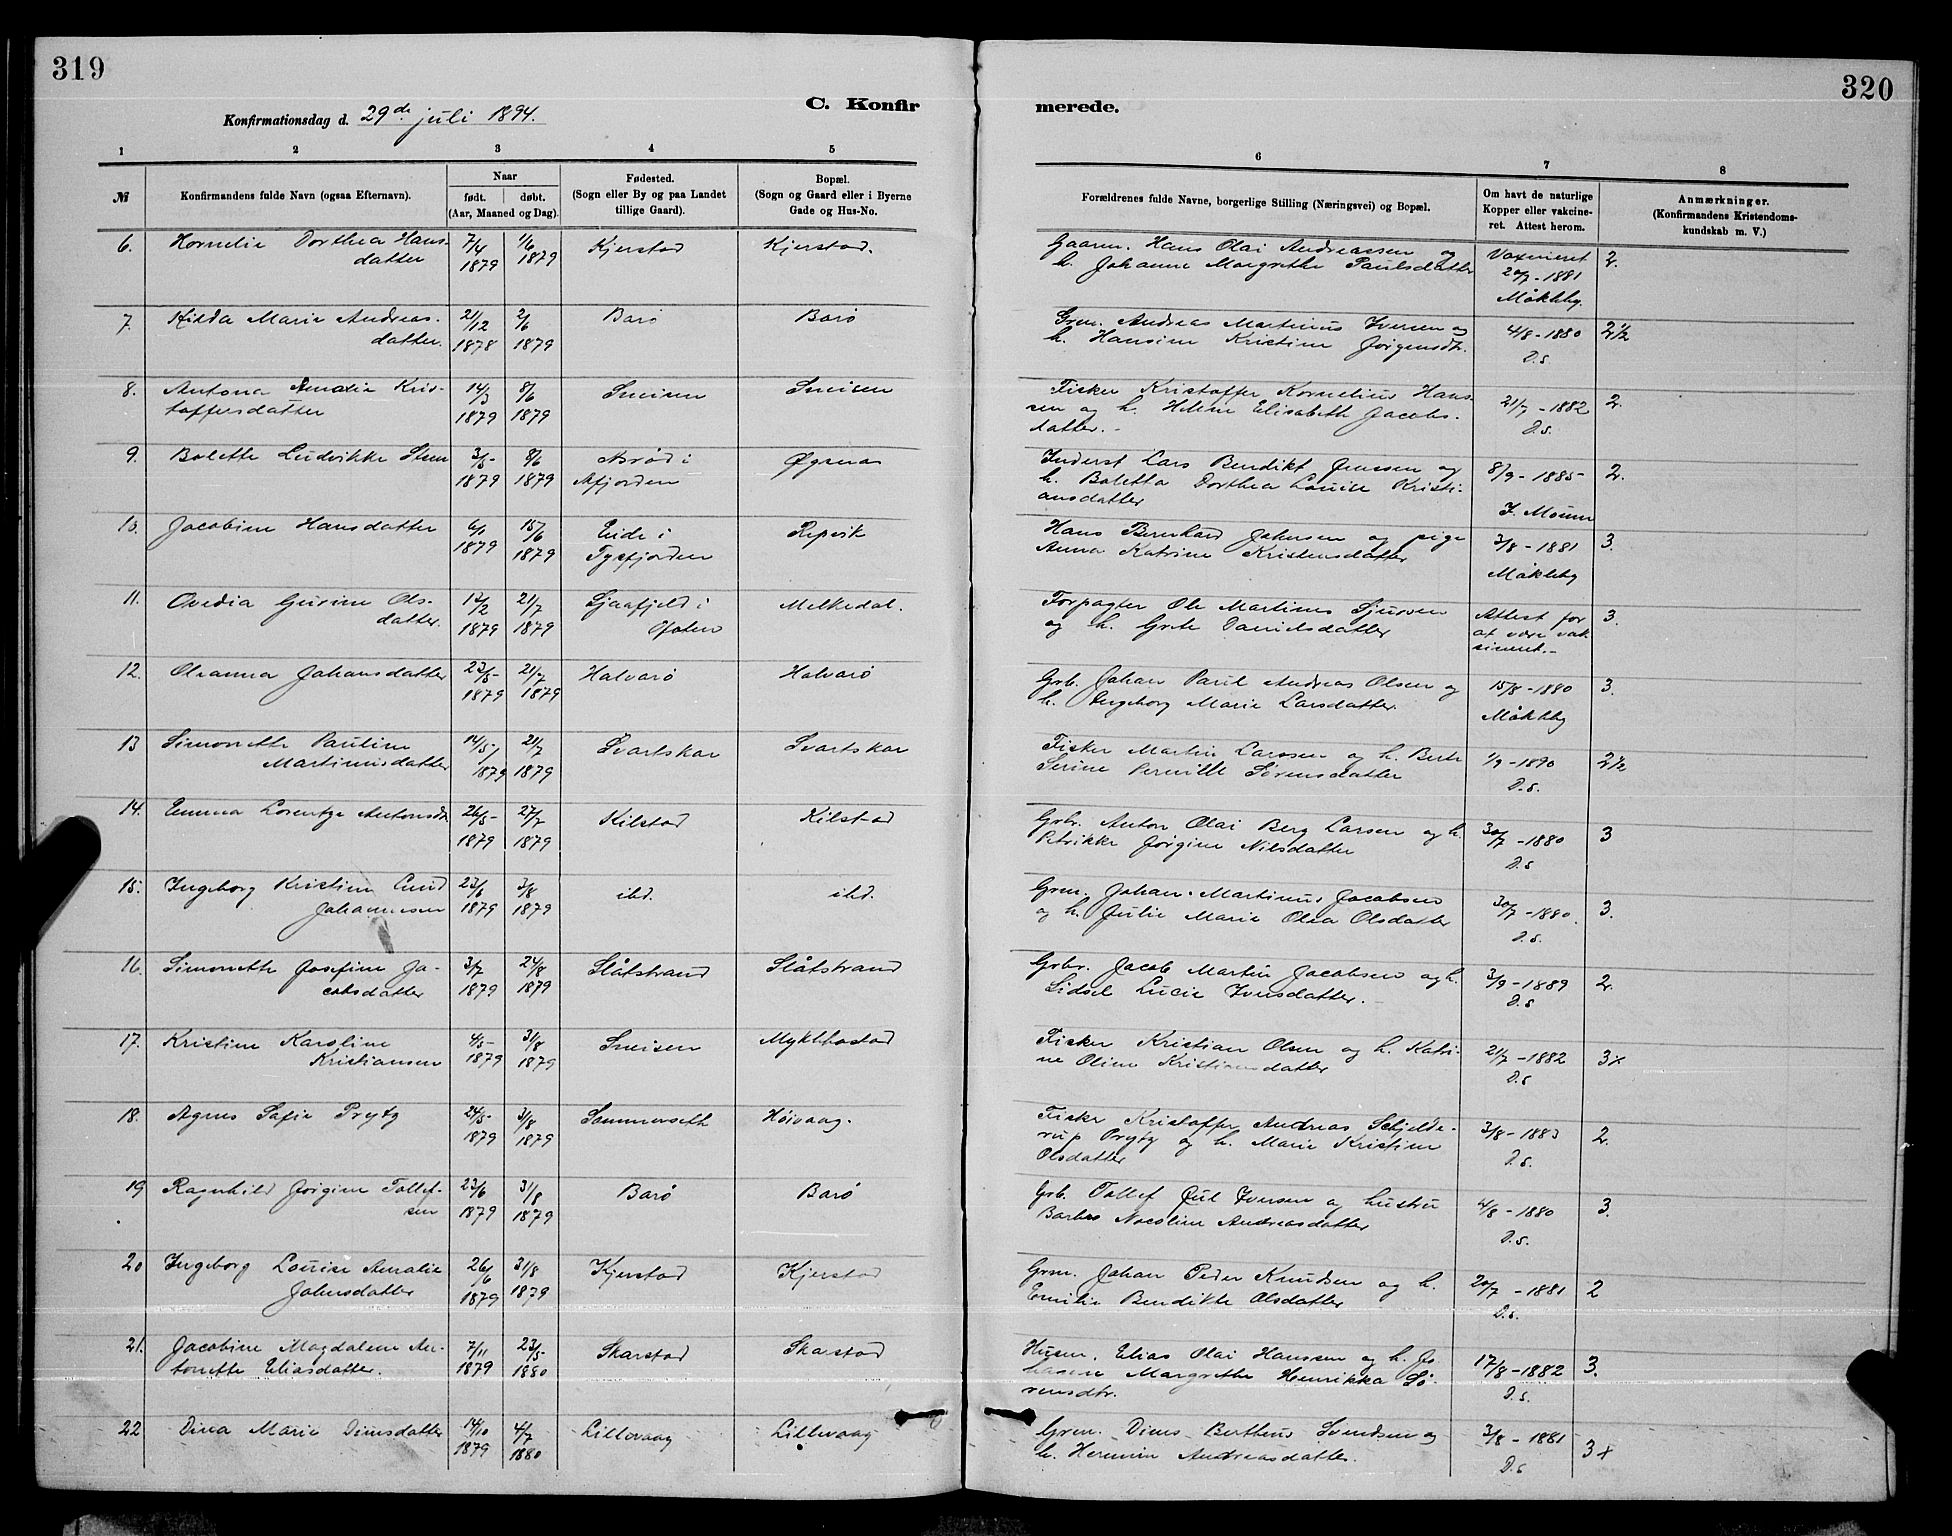 319
320
C. Konfir
merede.
Konfirmationsdag d. 29de juli 1894.
1 2 3 4 5
6 7 8
№ Konfirmandens fulde Navn (ogsaa Efternavn). Naar født. døbt. (Aar, Maaned og Dag). Fødested. (Sogn eller By og paa Landet tillige Gaard). Bopæl. (Sogn og Gaard eller i Byerne Gade og Hus-No.
Forældrenes fulde Navne, borgerlige Stilling (Næringsvei) og Bopæl. Om havt de naturlige Kopper eller vakcineret. Attest herom. Anmærkninger. (Konfirmandens Kristendomskundskab m. V.)
6. Kornelie Dorthea Hans- 7/4 1/6 Kjerstad Kjerstad. Gaarm. Hans Olai Andreassen og Vaxineret 2.
datter 1879 1879 h. Johanne Margrethe Paulsdatter 20/7 - 1881
Møkleby
7. Hilda Marie Andreas- 21/12 2/6 Barø Barø Grm. Andreas Martinus Iversen og 4/8 - 1880 2½
datter. 1878 1879 h. Hansine Kristine Jørgensdtr. D.s.
8. Antona Amalie Kris- 14/3 8/6 Sneisen Sneisen Fisker Kristoffer Kornelius Hans- 21/7 - 1882 2.
toffersdatter 1879 1879 sen og h. Helene Elisabeth Jacobs- D.s.
datter. -
9. Bolette Ludvikke 3/5- 8/6 i Øgsnas Inderst Lars Bendikt Jenssen og 8/9 - 1885- 2.
1879 1879 Afjorden h. Boletta Dorthea Louise Kristi-
ansdatter J. Moum
10. Jacobine Hansdatter 6/1 15/6 Eide i Repvik Hans Bernhard Johnsen og pige 3/8 - 1881 3.
1879 1879 Tysfjorden Anna Katrine Kristensdatter Møkleby
11. Ovedia Gurine Ols- 12/2 21/7 Sjaafjeld i Melkedal. Forpagter Ole Martines Sjursen Attest for 3.
datter. 1879 1879 Ofoten og h. Grete Danielsdatter at være vak-
sineret.-
12. Oleanna Johansdatter 23/5- 21/7 Halvarø Halvarø Grb. Johan Paul Andreas Olsen og 15/8 - 1880 3.
1879 1879 h. Ingeborg Marie Larsdatter. Møkleby
13 Simonette Pauline 14/5- 21/7 Svartskar Svartskar Fisker Martin Larssen og h. Berte 1/9 - 1890 2½
Martinusdatter 1879 1879 Serine Pernille Sørensdatter D.s.
14. Emma Lorentze Antonsdt. 26/5- 27/7 Kilstad Kilstad Grbr. Anton Olai Berg Larsen og h. 30/7 - 1880 3
1879 1879 Petrikke Jørgine Nilsdatter D.s
15. Ingeborg Kristine Lund 23/6 3/8 ibd. ibd. Grm. Johan Martinus Jacobsen 30/7 - 1880. 3.
Johannesen 1879 1879 og h. Julie Marie Olea Olsdatter D.s.
16. Simonette Josefine Ja- 3/7 24/8 Slåtstrand Slåtstrand Grbr. Jacob Martin Jacobsen og h. 3/9 - 1889 2.
cobsdatter 1879 1879 Sidsel Lucie Iversdatter. - D.s
17. Kristine Karoline 4/5- 31/8 Sneisen Myklbostad Fisker Kristian Olsen og h. Katri- 21/7 - 1882 3x
Kristiansen 1879 1879 ne Oline Kristiansdatter D.s
18. Agnes Safie Prytz 24/5- 31/8 Sommerseth Høivaag. Fisker Kristoffer Andreas Schjelde- 3/8 - 1883 2.
1879 1879 rup Prytz og h. Marie Kristine D.s.
Olsdatter
19 Ragnhild Jørgine Tollef- 23/6 31/8 Barø Barø Grb. Tollef Jul Iversen og hustru 4/8 - 1880 3.
sen 1879 1879 Barbro Nocoline Andreasdatter D.s.
20 Ingeborg Louise Amalie 26/6 31/8 Kjerstad Kjerstad Grm. Johan Peder Knudsen og h. 20/7 - 1881 2
Johnsdatter 1879 1879 Emilie Bendikte Olsdatter D.s.
21. Jacobine Magdalene An- 7/11 23/5- Skarstad Skarstad Husm. Elias Olai Hanssen og h. Jo 17/8 - 1882 3.
tonette Eliasdatter. 1879 1880 hanne Margrethe Henrikka Sø- D.s.
rensdtr.
22 Dina Marie Dinesdatter 14/10 4/7 Lillevaag Lillevaag Grm. Dines Bertheus Svendsen og 3/8 - 1881 3x
1879 1880 h. Hermine Andreasdatter. D.s